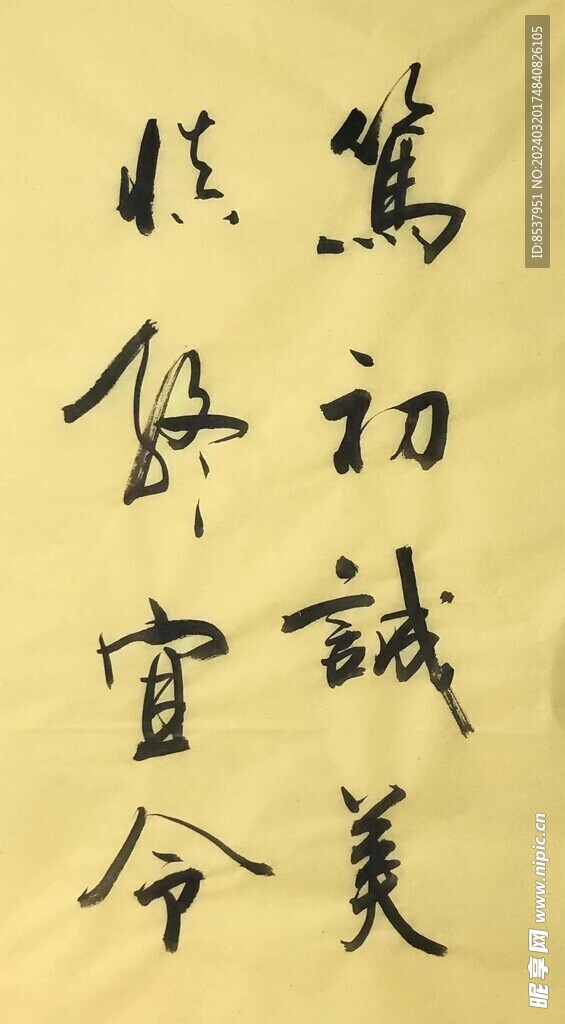 篤初誠美
慎終宜令
ID:8537951 NO:20240320174840826105
昵享网 www.nipic.cn